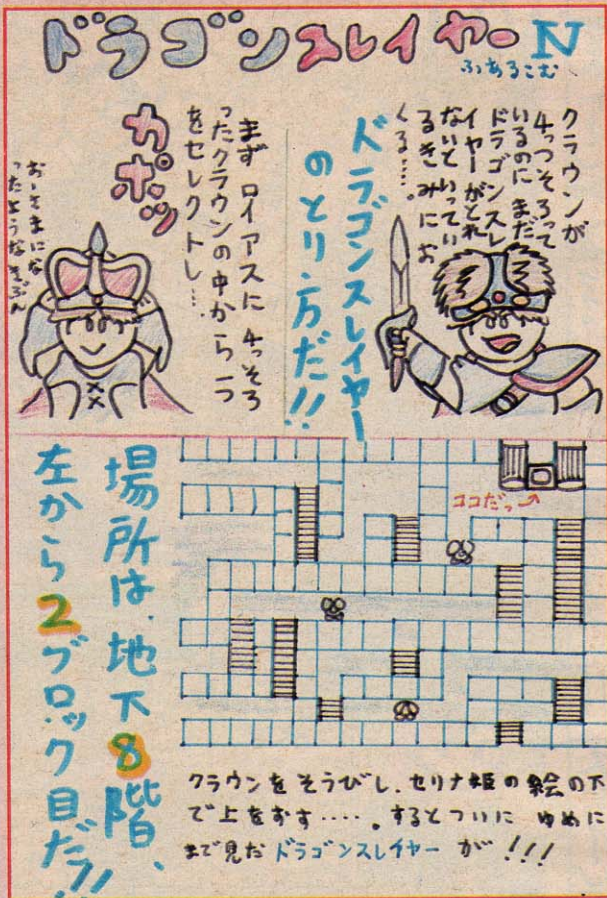 ドラゴンスレイヤーⅣ
ふぁるこむ
クラウンが
4っつそろって
いるのに まだ
ドラゴンスレ
イヤーがとれ
ないと いってい
るきみに お
くる……。
ドラゴンスレイヤー
のとり方だ!!
まず ロイアスに 4っそろ
ったクラウンの中から 一つ
をセレクトし…
カポッ
おーさまにな
ったようなきぶん
ココだっ→
場所は、地下8階、
左から2ブロック目だァ!!
クラウンをそうびし、セリナ姫の絵の下
で上をおす……。するとついに ゆめに
まで見た ドラゴンスレイヤー が !!!